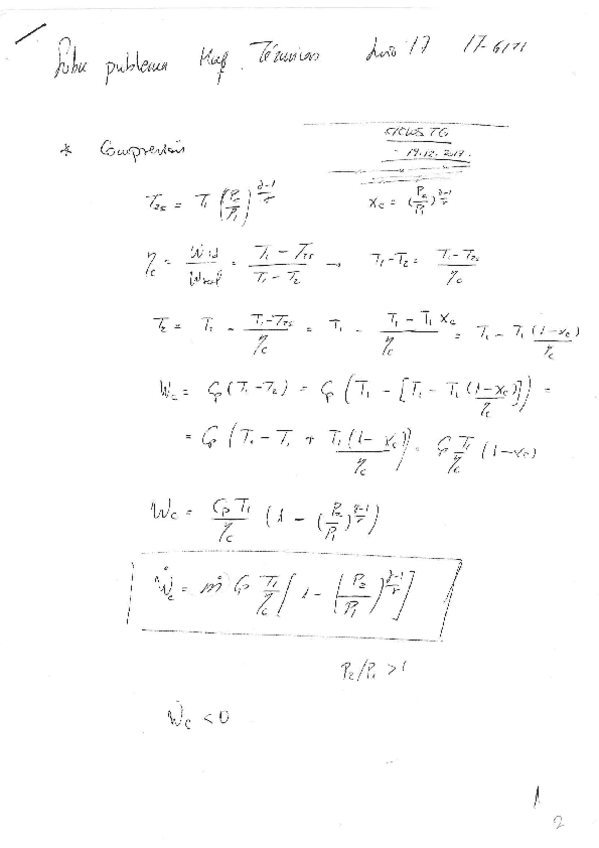 Sobre problema Maq. Térmicas Junio 17 17-6/71
CICLOS TG
19.12.2017.
* Compresión
T₂s = T₁ (P₂/P₁)^((γ-1)/γ) x_c = (P₂/P₁)^((γ-1)/γ)
η_c = Wid/Wreal = (T₁ - T₂s)/(T₁ - T₂) → T₁-T₂ = (T₁-T₂s)/η_c
T₂ = T₁ - (T₁-T₂s)/η_c = T₁ - (T₁ - T₁ x_c)/η_c = T₁ - T₁ (1-x_c)/η_c
W_c = Cp (T₁-T₂) = Cp (T₁ - [T₁ - T₁ (1-x_c)/η_c]) =
= Cp (T₁ - T₁ + T₁(1- x_c)/η_c) = Cp T₁/η_c (1-x_c)
W_c = Cp T₁/η_c (1 - (P₂/P₁)^((γ-1)/γ))
Ẇ_c = ṁ Cp T₁/η_c [1 - (P₂/P₁)^((γ-1)/γ)]
P₂/P₁ > 1
Ẇ_c < 0
1
2